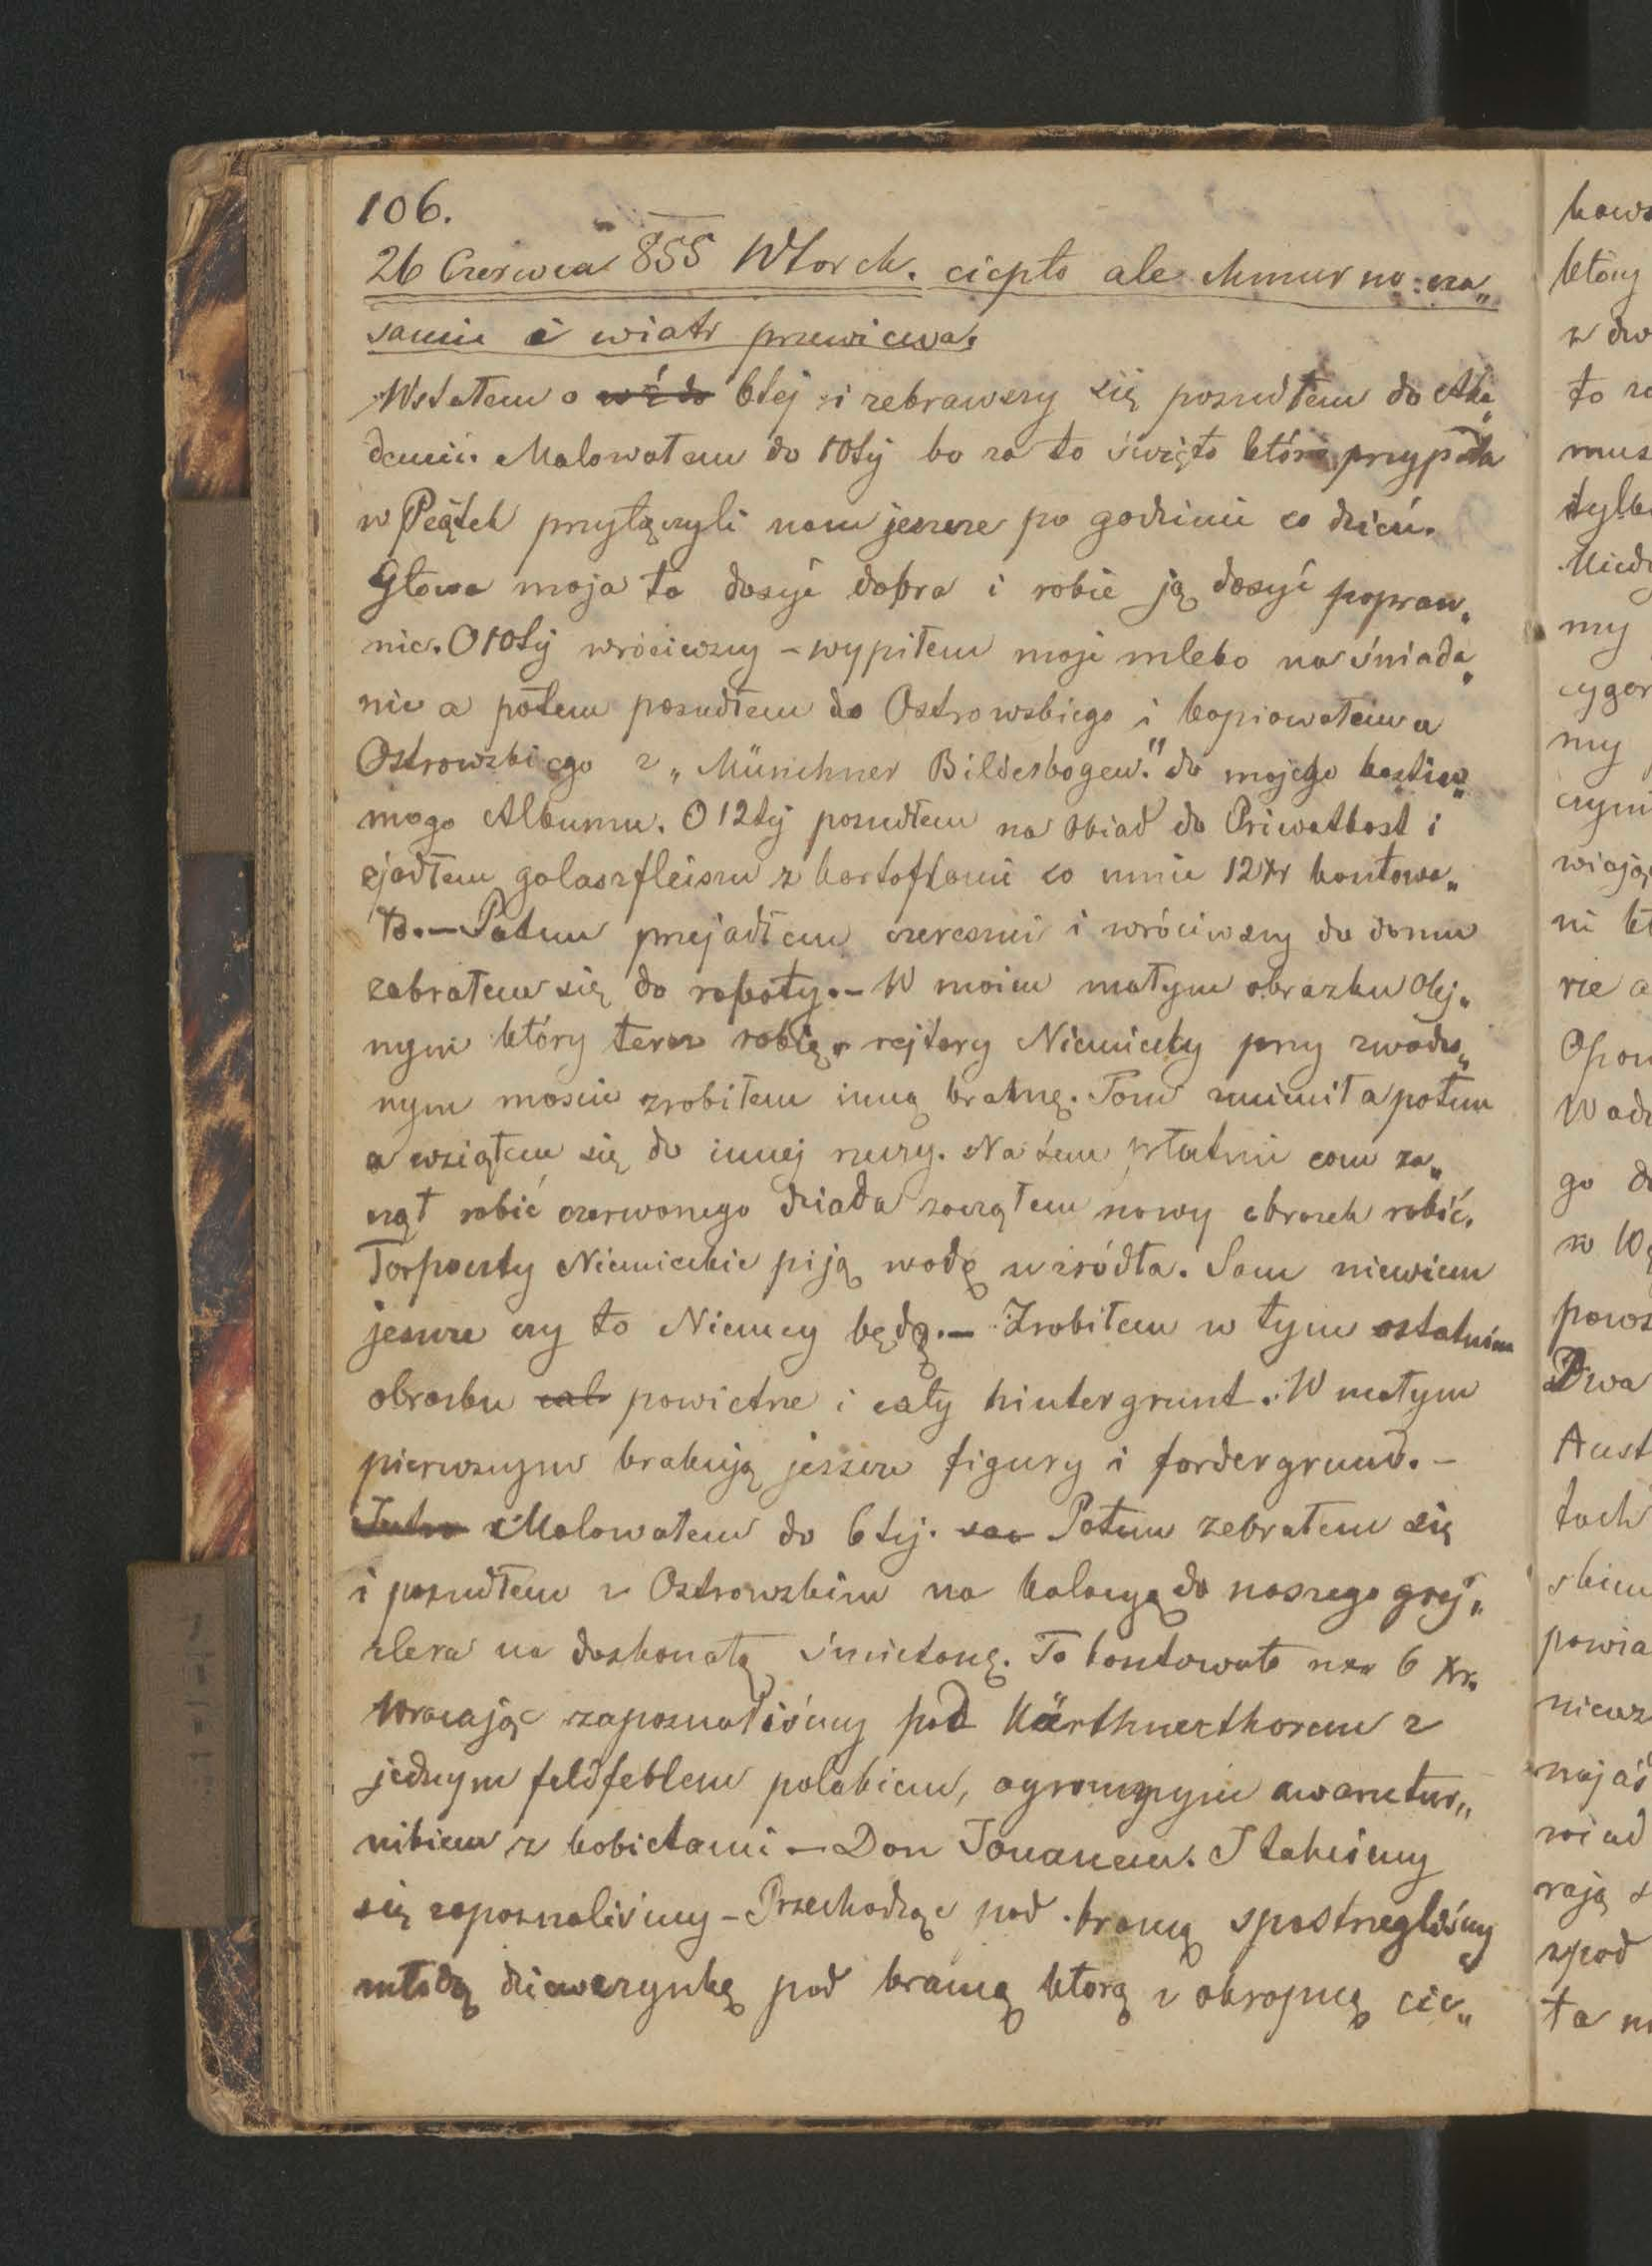 106.
26 Czerwca 855 Wtorek. ciepło ale chmurno: cza„
sami i wiatr przewiewa.
Wstałem o 6tej i zebrawszy się poszedłem do Aka„
demii. Malowałem do 10tej bo za to święto które przypada
w Piątek przyłączyli nam jeszcze po godzinie co dzień.
Głowa moja to dosyć dobra i robie ją dosyć popraw„
nie. O 10tej wróciwszy – wypiłem moje mleko na śniada„
nie a potem poszedłem do Ostrowskiego i kopiowałem u
Ostrowskiego z „Münchner Bilderbogen." do mojego kostiu„
mogo Albumu. O 12tej poszedłem na obiad do Priwatkost i
zjadłem golaszfleisz z kartoflami co mnie 12 Xr kontowa„
ło. – Potem przejadłem czereśni i wróciwszy do domu
zabrałem się do roboty. – W moim małym obrazku olej„
nym który teraz robię rejtary Niemiecky przy zwodzo„
nym moście zrobiłem inną bramę. Tom zmienił a potem
a wziąłem się do innej rzeczy. Na tem płutnie com za„
czął robić czerwonego dziada zacząłem nowy obrazek robić.
Torpoczty Niemieckie piją wodę u źródła. Sam niewiem
jeszcze czy to Niemcy będą. – Zrobiłem w tym ostatnim
obrazku powietrze i cały hintergrunt. W małym
pierwszym brakują jeszcze figury i fordergrund. –
Malowałem do 6tej. Potem zebrałem się
i poszedłem z Ostrowskim na kolacyą do naszego grej„
zlera na doskonałą śmietanę. To kontowało nas 6 Xr.
Wracając zapoznaliśmy pod Kärthnerthorem z
jednym feldfeblem polakiem, ogromnym awantur„
nikiem z kobietami – Don Jouanem. I takeśmy
się zapoznaliśmy – Przechodząc pod bramą spostrzegliśmy
młodą dziewczynkę pod bramą którą z okropną cie„